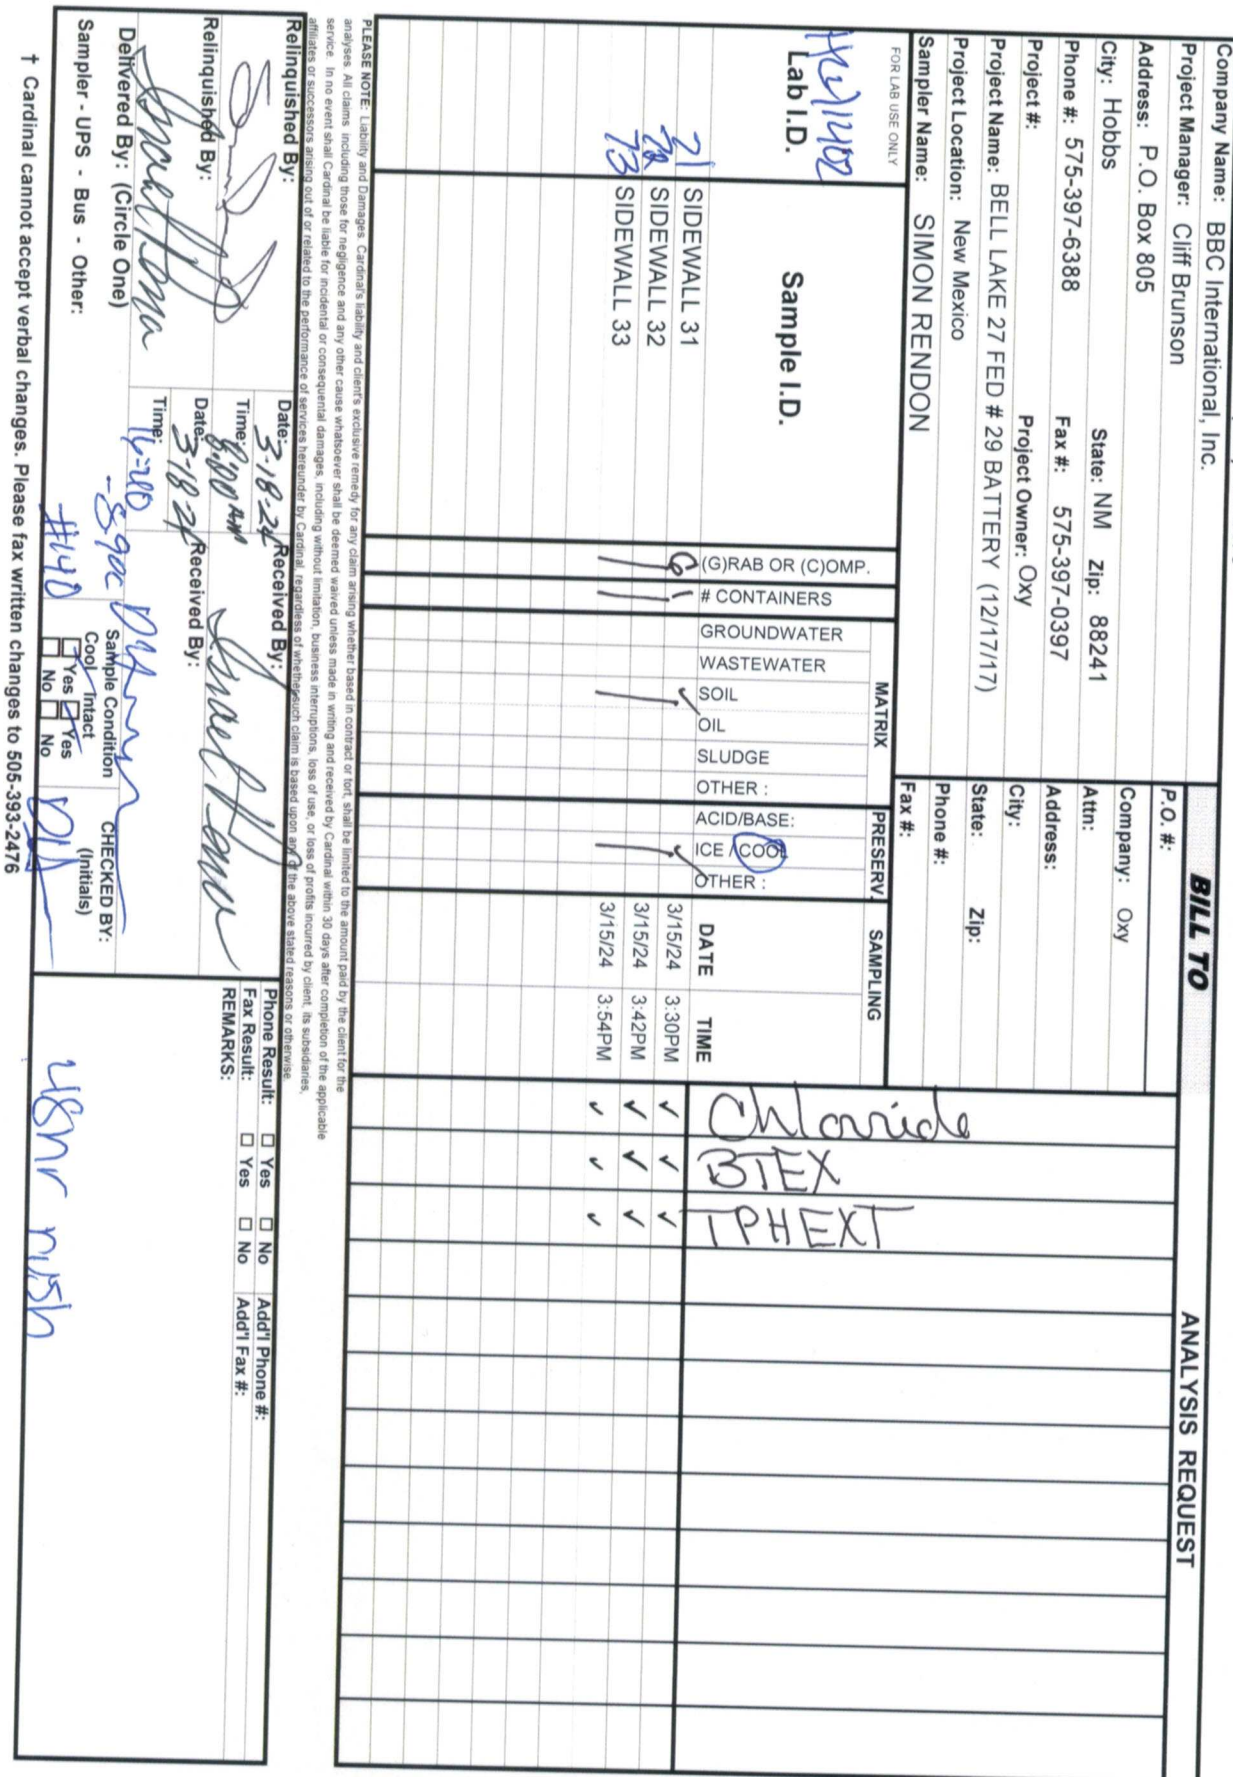 Company Name: BBC International, Inc.
Project Manager: Cliff Brunson
Address: P.O. Box 805
City: Hobbs State: NM Zip: 88241
Phone #: 575-397-6388 Fax #: 575-397-0397
Project #: Project Owner: Oxy
Project Name: BELL LAKE 27 FED # 29 BATTERY (12/17/17)
Project Location: New Mexico
Sampler Name: SIMON RENDON
BILL TO
P.O. #:
Company: Oxy
Attn:
Address:
City:
State: Zip:
Phone #:
Fax #:
ANALYSIS REQUEST
Chloride
BTEX
TPH EXT
FOR LAB USE ONLY
Lab I.D.
Sample I.D.
(G)RAB OR (C)OMP.
# CONTAINERS
MATRIX
GROUNDWATER
WASTEWATER
SOIL
OIL
SLUDGE
OTHER :
PRESERV.
ACID/BASE:
ICE / COOL
OTHER :
SAMPLING
DATE TIME
SIDEWALL 31 1 ✓ ✓ 3/15/24 3:30PM ✓ ✓ ✓
SIDEWALL 32 3/15/24 3:42PM ✓ ✓ ✓
73 SIDEWALL 33 3/15/24 3:54PM ✓ ✓ ✓
PLEASE NOTE: Liability and Damages. Cardinal's liability and client's exclusive remedy for any claim arising whether based in contract or tort, shall be limited to the amount paid by the client for the
analyses. All claims including those for negligence and any other cause whatsoever shall be deemed waived unless made in writing and received by Cardinal within 30 days after completion of the applicable
service. In no event shall Cardinal be liable for incidental or consequental damages, including without limitation, business interruptions, loss of use, or loss of profits incurred by client, its subsidiaries,
affiliates or successors arising out of or related to the performance of services hereunder by Cardinal, regardless of whether such claim is based upon any of the above stated reasons or otherwise.
Relinquished By:
Date: 3-18-24
Time: 8:00 AM
Received By:
Relinquished By:
Date: 3-18-24
Time:
Received By:
Delivered By: (Circle One)
Sampler - UPS - Bus - Other:
#140
Sample Condition
Cool Intact
Yes Yes
No No
CHECKED BY:
(Initials)
Phone Result: Yes No Add'l Phone #:
Fax Result: Yes No Add'l Fax #:
REMARKS:
48hr rush
† Cardinal cannot accept verbal changes. Please fax written changes to 505-393-2476